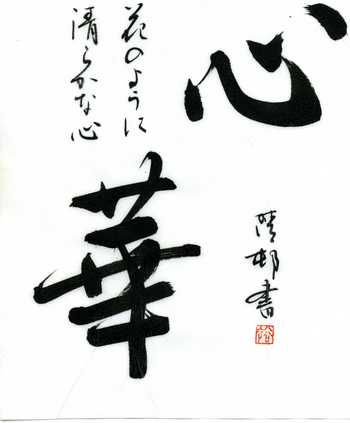 心
華
花のように
清らかな心